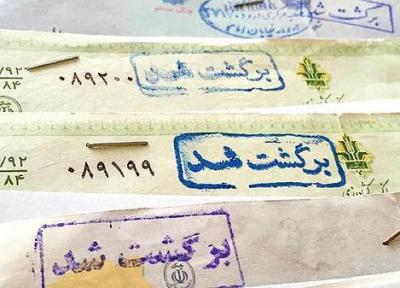 برگشت شد
۰۸۹۲۰۰ برگشت شد
/۹۲
۸۴
۰۸۹۱۹۹ برگشت شد
/۹۲
۸۴
برگشت شد